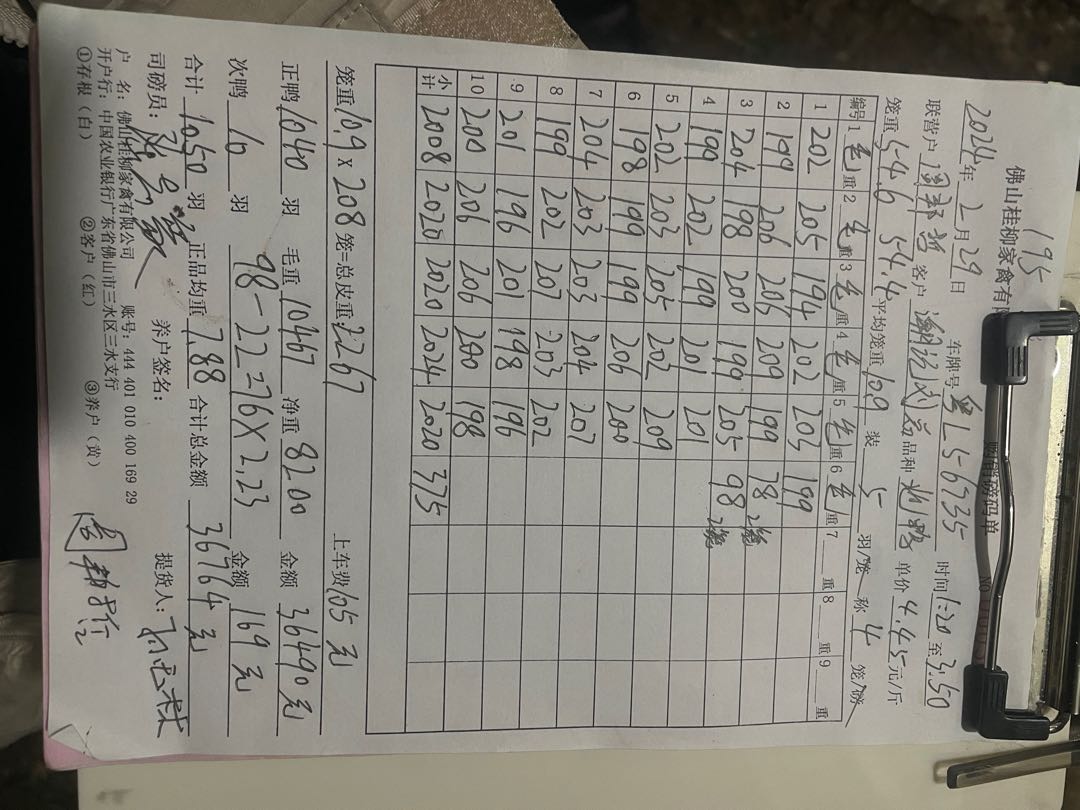 195
佛山桂柳家禽有
赊销磅码单
2024年 2月29日 车牌号 粤L56735 时间 1:20 至 3:50
联营户 客户 品种 单价 4.45 元/斤
笼重 54.6 54.4 平均笼重 10.9 装 5 羽/笼 称 4 笼/磅
编号 1 毛重 2 毛重 3 毛重 4 毛重 5 毛重 6 毛重 7 重 8 重 9 重
1 202 205 194 202 203 199
2 199 206 206 209 199 78 2笼
3 204 198 200 199 205 98 2笼
4 199 202 199 201 201
5 202 203 205 202 209
6 198 199 199 206 200
7 204 203 203 204 207
8 199 202 207 203 202
9 201 196 201 198 196
10 200 206 206 200 198
小计 2008 2020 2020 2024 2020 375
笼重 10.9 x 208 笼=总皮重 2267 上车费 105 元
正鸭 1040 羽 毛重 10467 净重 8200 金额 36490 元
次鸭 10 羽 98-22=76×2.23 金额 169 元
合计 1050 羽 正品均重 7.88 合计总金额 36764 元
司磅员： 养户签名： 提货人：
户 名：佛山桂柳家禽有限公司 账号：444 401 010 400 169 29
开户行：中国农业银行广东省佛山市三水区三水支行
①存根（白） ②客户（红） ③养户（黄）